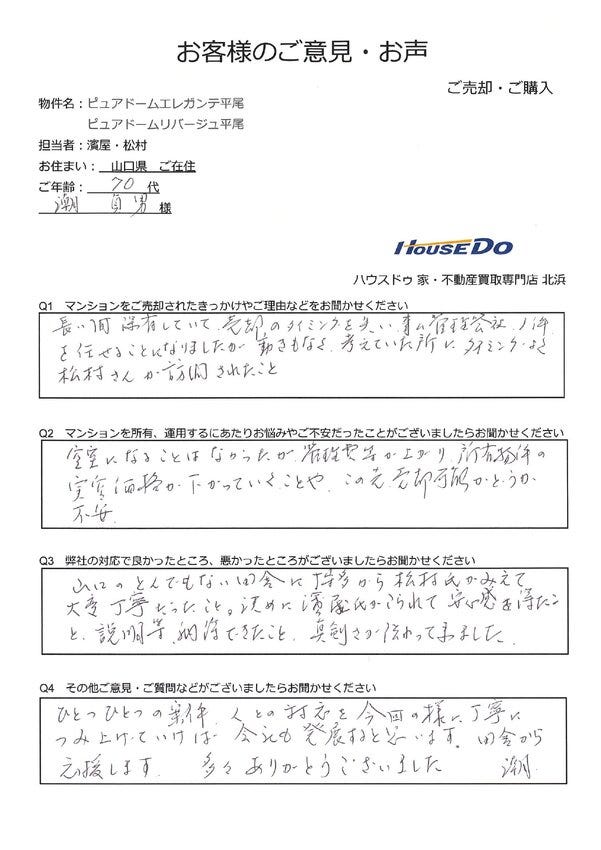 お客様のご意見・お声
ご売却・ご購入
物件名：ピュアドームエレガンテ平尾
ピュアドームリバージュ平尾
担当者：濱屋・松村
お住まい： 山口県 ご在住
ご年齢： 70 代
潮 貞男 様
HOUSEDO
ハウスドゥ 家・不動産買取専門店 北浜
Q1 マンションをご売却されたきっかけやご理由などをお聞かせください
長い間保有していて、売却のタイミングを失い、管理会社
を任せることになりましたが動きもなく、考えていた所に、タイミングよく
松村さんが訪問されたこと
Q2 マンションを所有、運用するにあたりお悩みやご不安だったことがございましたらお聞かせください
空室になることはなかったが管理費等が上がり、所有物件の
実質価格が下がっていくことや、この先、売却可能かどうか
不安
Q3 弊社の対応で良かったところ、悪かったところがございましたらお聞かせください
山口のとんでもない田舎に博多から松村氏がみえて
大変丁寧だったこと。決めに濱屋氏がこられて安心感を得たこ
と、説明等、納得できたこと、真剣さが伝わって来ました。
Q4 その他ご意見・ご質問などがございましたらお聞かせください
ひとつひとつの案件、人との対応を今回の様に、丁寧に
つみ上げていけば会社も発展すると思います。田舎から
応援します。 多々ありがとうございました 潮